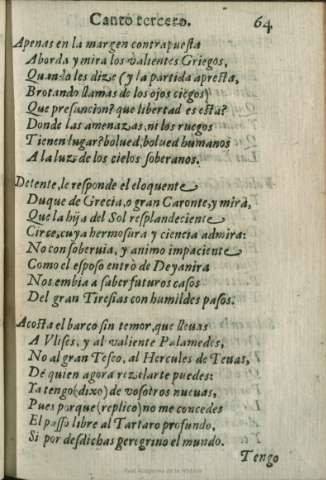 Canto tercero. 64
Apenas en la margen contrapuesta
Aborda y mira los valientes Griegos,
Quando les dize (y la partida apresta,
Brotando llamas de los ojos ciegos)
Que presuncion? que libertad es esta?
Donde las amenazas, ni los ruegos
Tienen lugar? bolued, bolued humanos
A la luz de los cielos soberanos.
Detente, le responde el eloquente
Duque de Grecia, o gran Caronte, y mira,
Que la hija del Sol resplandeciente
Circe, cuya hermosura y ciencia admira:
No con soberuia, y animo impaciente
Como el esposo entrò de Deyanira
Nos embia a saber futuros casos
Del gran Tiresias con humildes pasos.
Acosta el barco sin temor, que lleuas
A Vlises, y al valiente Palamedes,
No al gran Teseo, al Hercules de Teuas,
De quien agora rezelarte puedes:
Ya tengo (dixo) de vosotros nueuas,
Pues porque (replicò) no me concedes
El passo libre al Tartaro profundo,
Si por desdichas peregrino el mundo.
Tengo
Real Academia de la Historia